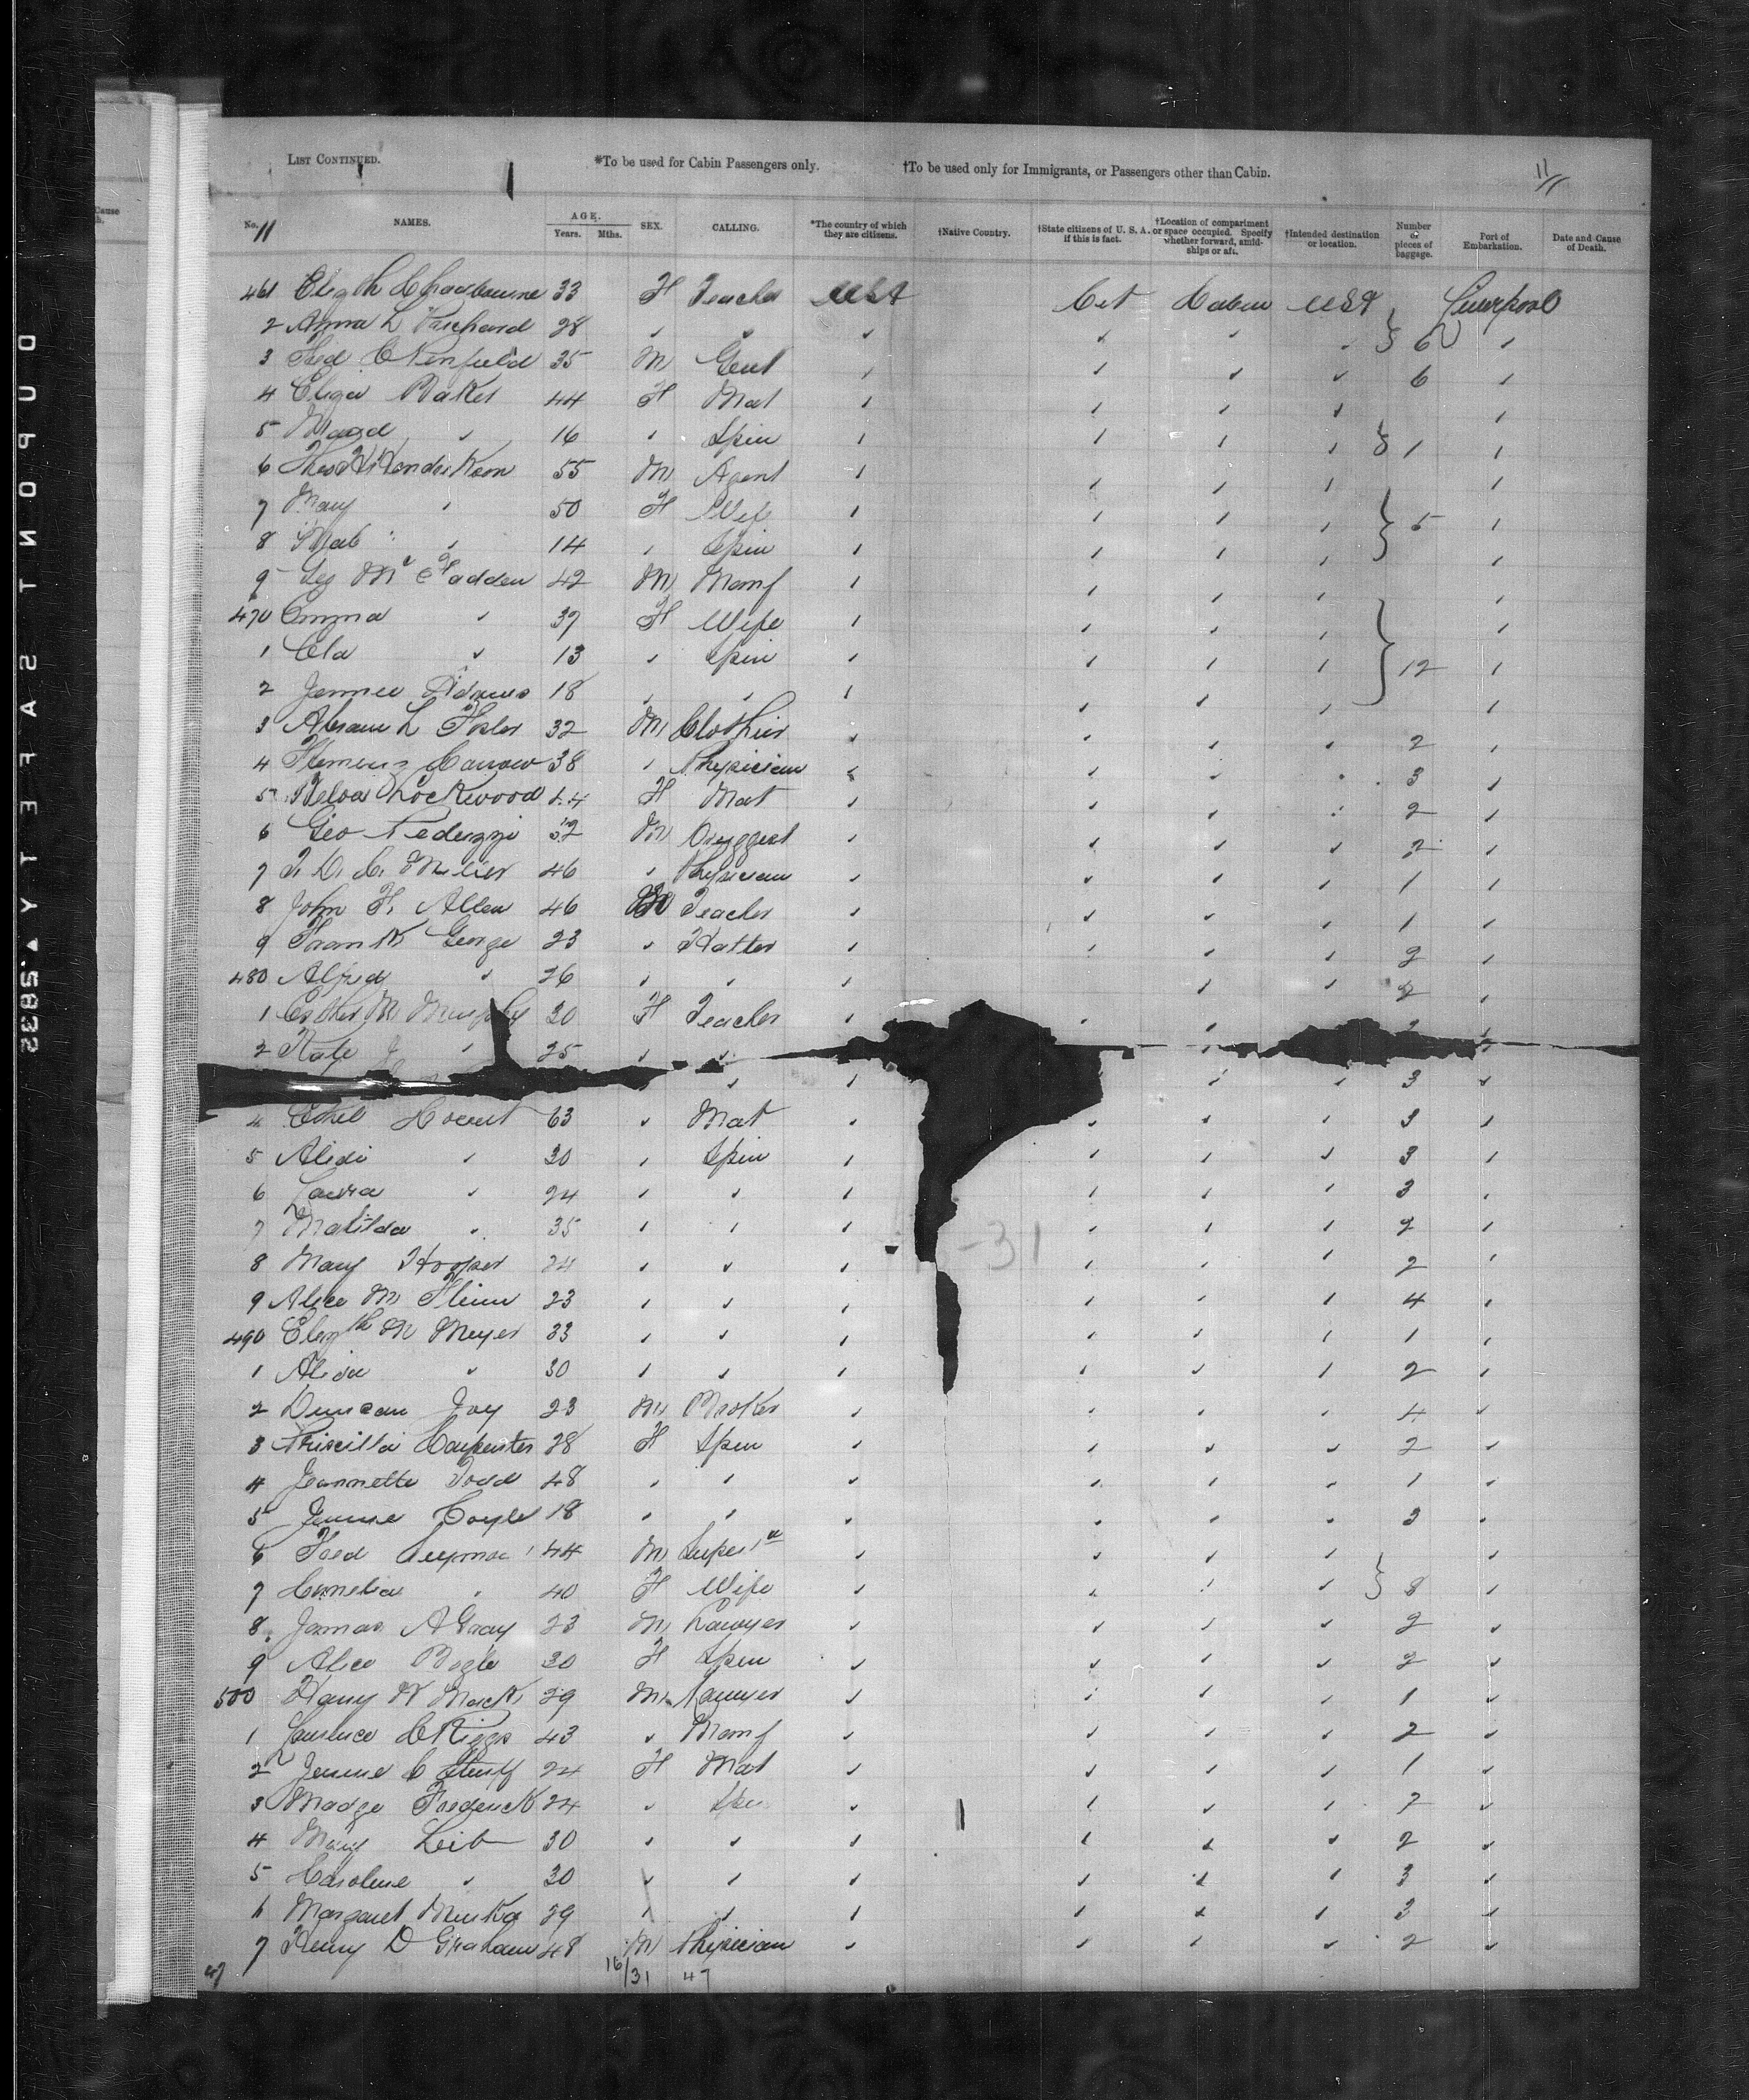 LIST CONTINUED. *To be used for Cabin Passengers only. †To be used only for Immigrants, or Passengers other than Cabin. 11
No. 11 NAMES. AGE. Years. Mths. SEX. CALLING. *The country of which they are citizens. †Native Country. †State citizens of U. S. A. if this is fact. †Location of compartment or space occupied. Specify whether forward, amidships or aft. †Intended destination or location. Number of pieces of baggage. Port of Embarkation. Date and Cause of Death.
461 Elizth Chadbourne 33 F Teacher USA Cit Cabin USA Liverpool
2 Anna L Prichard 28 " " " " " " } 6 "
3 Fred C Penfield 35 M Gent " " " " 6 "
4 Eliza Baker 44 F Mat " " " " "
5 Maud " 16 " Spin " " " " } 1 "
6 Thos H Hendrikson 55 M Agent " " " " "
7 Mary " 50 F Wife " " " " } 5 "
8 " 14 " Spin " " " " "
9 Geo McFadden 42 M Manf " " " " "
470 Emma " 37 F Wife " " " " "
1 Ela " 13 " Spin " " " " } 12 "
2 Jennie Adams 18 " " " " " " "
3 Abram L Foster 32 M Clothier " " " " 2 "
4 Carrow 38 " Physician " " " " 3 "
5 Belva Lockwood 44 F Mat " " " " 2 "
6 Geo Peduzzi 52 M Druggist " " " " 2 "
7 46 " Physician " " " " 1 "
8 John F. Allen 46 M Teacher " " " " 1 "
9 Frank George 23 " Hatter " " " " 2 "
480 Alfred " 26 " " " " " 2 "
1 Esther M Murphy 30 F Teacher " " " "
2 Kate J " 25 " "
" " " " 3 "
4 Ethel 63 " Mat " " " " 3 "
5 " 30 " Spin " " " " 3 "
6 Laura " 24 " " " " " " 3 "
7 Matilda " 35 " " " " " " 2 "
-31
8 Mary Hooper 24 " " " " " " 2 "
9 Alice M Flinn 23 " " " " " " 4 "
490 Elizth M Meyer 33 " " " " " " 1 "
1 Alida " 30 " " " " " " 2 "
2 Duncan Joy 23 M Broker " " " " 4 "
3 Priscilla Carpenter 28 F Spin " " " " 2 "
4 Jeannette Todd 48 " " " " " " 1 "
5 Jennie Coyle 18 " " " " " " 3 "
6 Fred 44 M " " " " "
7 Cornelia " 40 F Wife " " " " } 8 "
8 James A Gray 23 M Lawyer " " " " 2 "
9 Alice Bogle 30 F Spin " " " " 2 "
500 Harry W Mack 29 M Lawyer " " " " 1 "
1 Lawrence C Riggs 43 " Manf " " " " 2 "
2 Jennie C 24 F Mat " " " " 1 "
3 Madge Frederick 24 " Spin " " " " 2 "
4 Mary Leib 30 " " " " " " 2 "
5 Caroline " 30 " " " " " " 3 "
6 Margaret 29 " " " " " " 3 "
7 Henry D Graham 48 M Physician " " " " 2 "
47 16/31 47
DUPONT SAFETY ▲ .5832